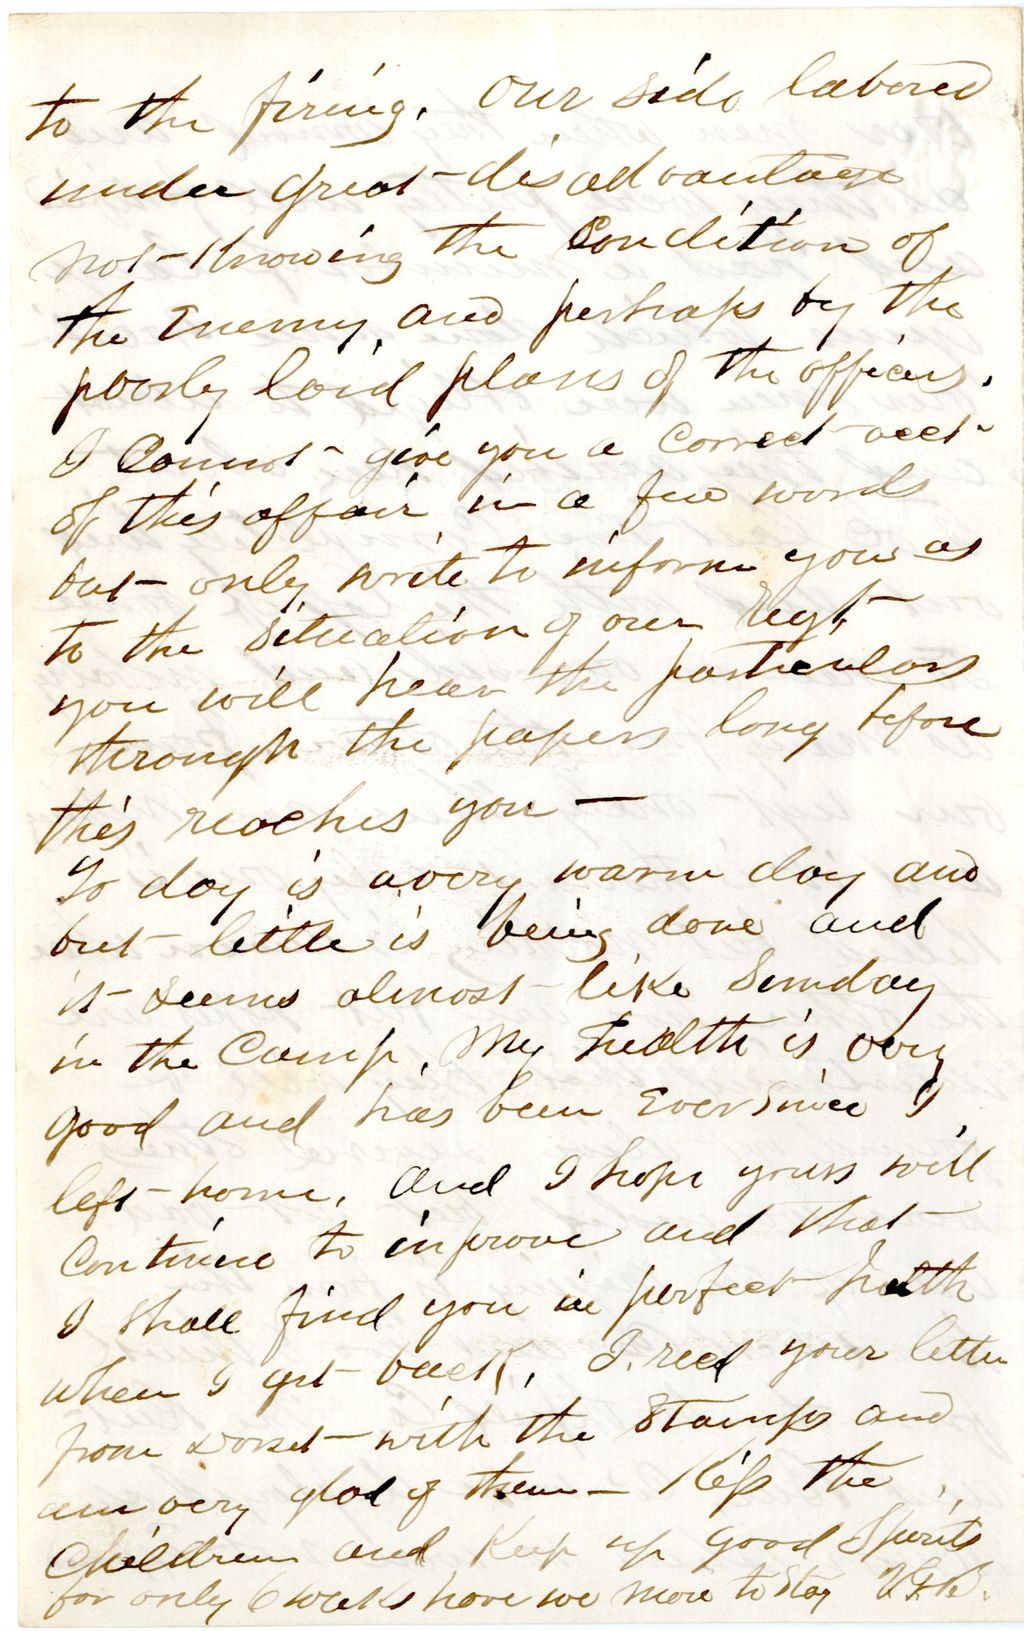 to the firing. Our side labored
under great disadvantage
not knowing the Condition of
the Enemy and perhaps by the
poorly laid plans of the officers.
I Cannot give you a correct acct
of this affair in a few words
but only write to inform you as
to the situation of our Regt.
you will hear the particulars
through the papers long before
this reaches you —
To day is a very warm day and
but little is being done and
it seems almost like Sunday
in the Camp. My health is very
good and has been Ever Since I
left home. And I hope yours will
Continue to improve and that
I shall find you in perfect health
when I get back. I recd your letter
from Dorset with the Stamps and
am very glad of them — Kiss the
Children and Keep up good Spirits
for only 6 weeks have we more to stay